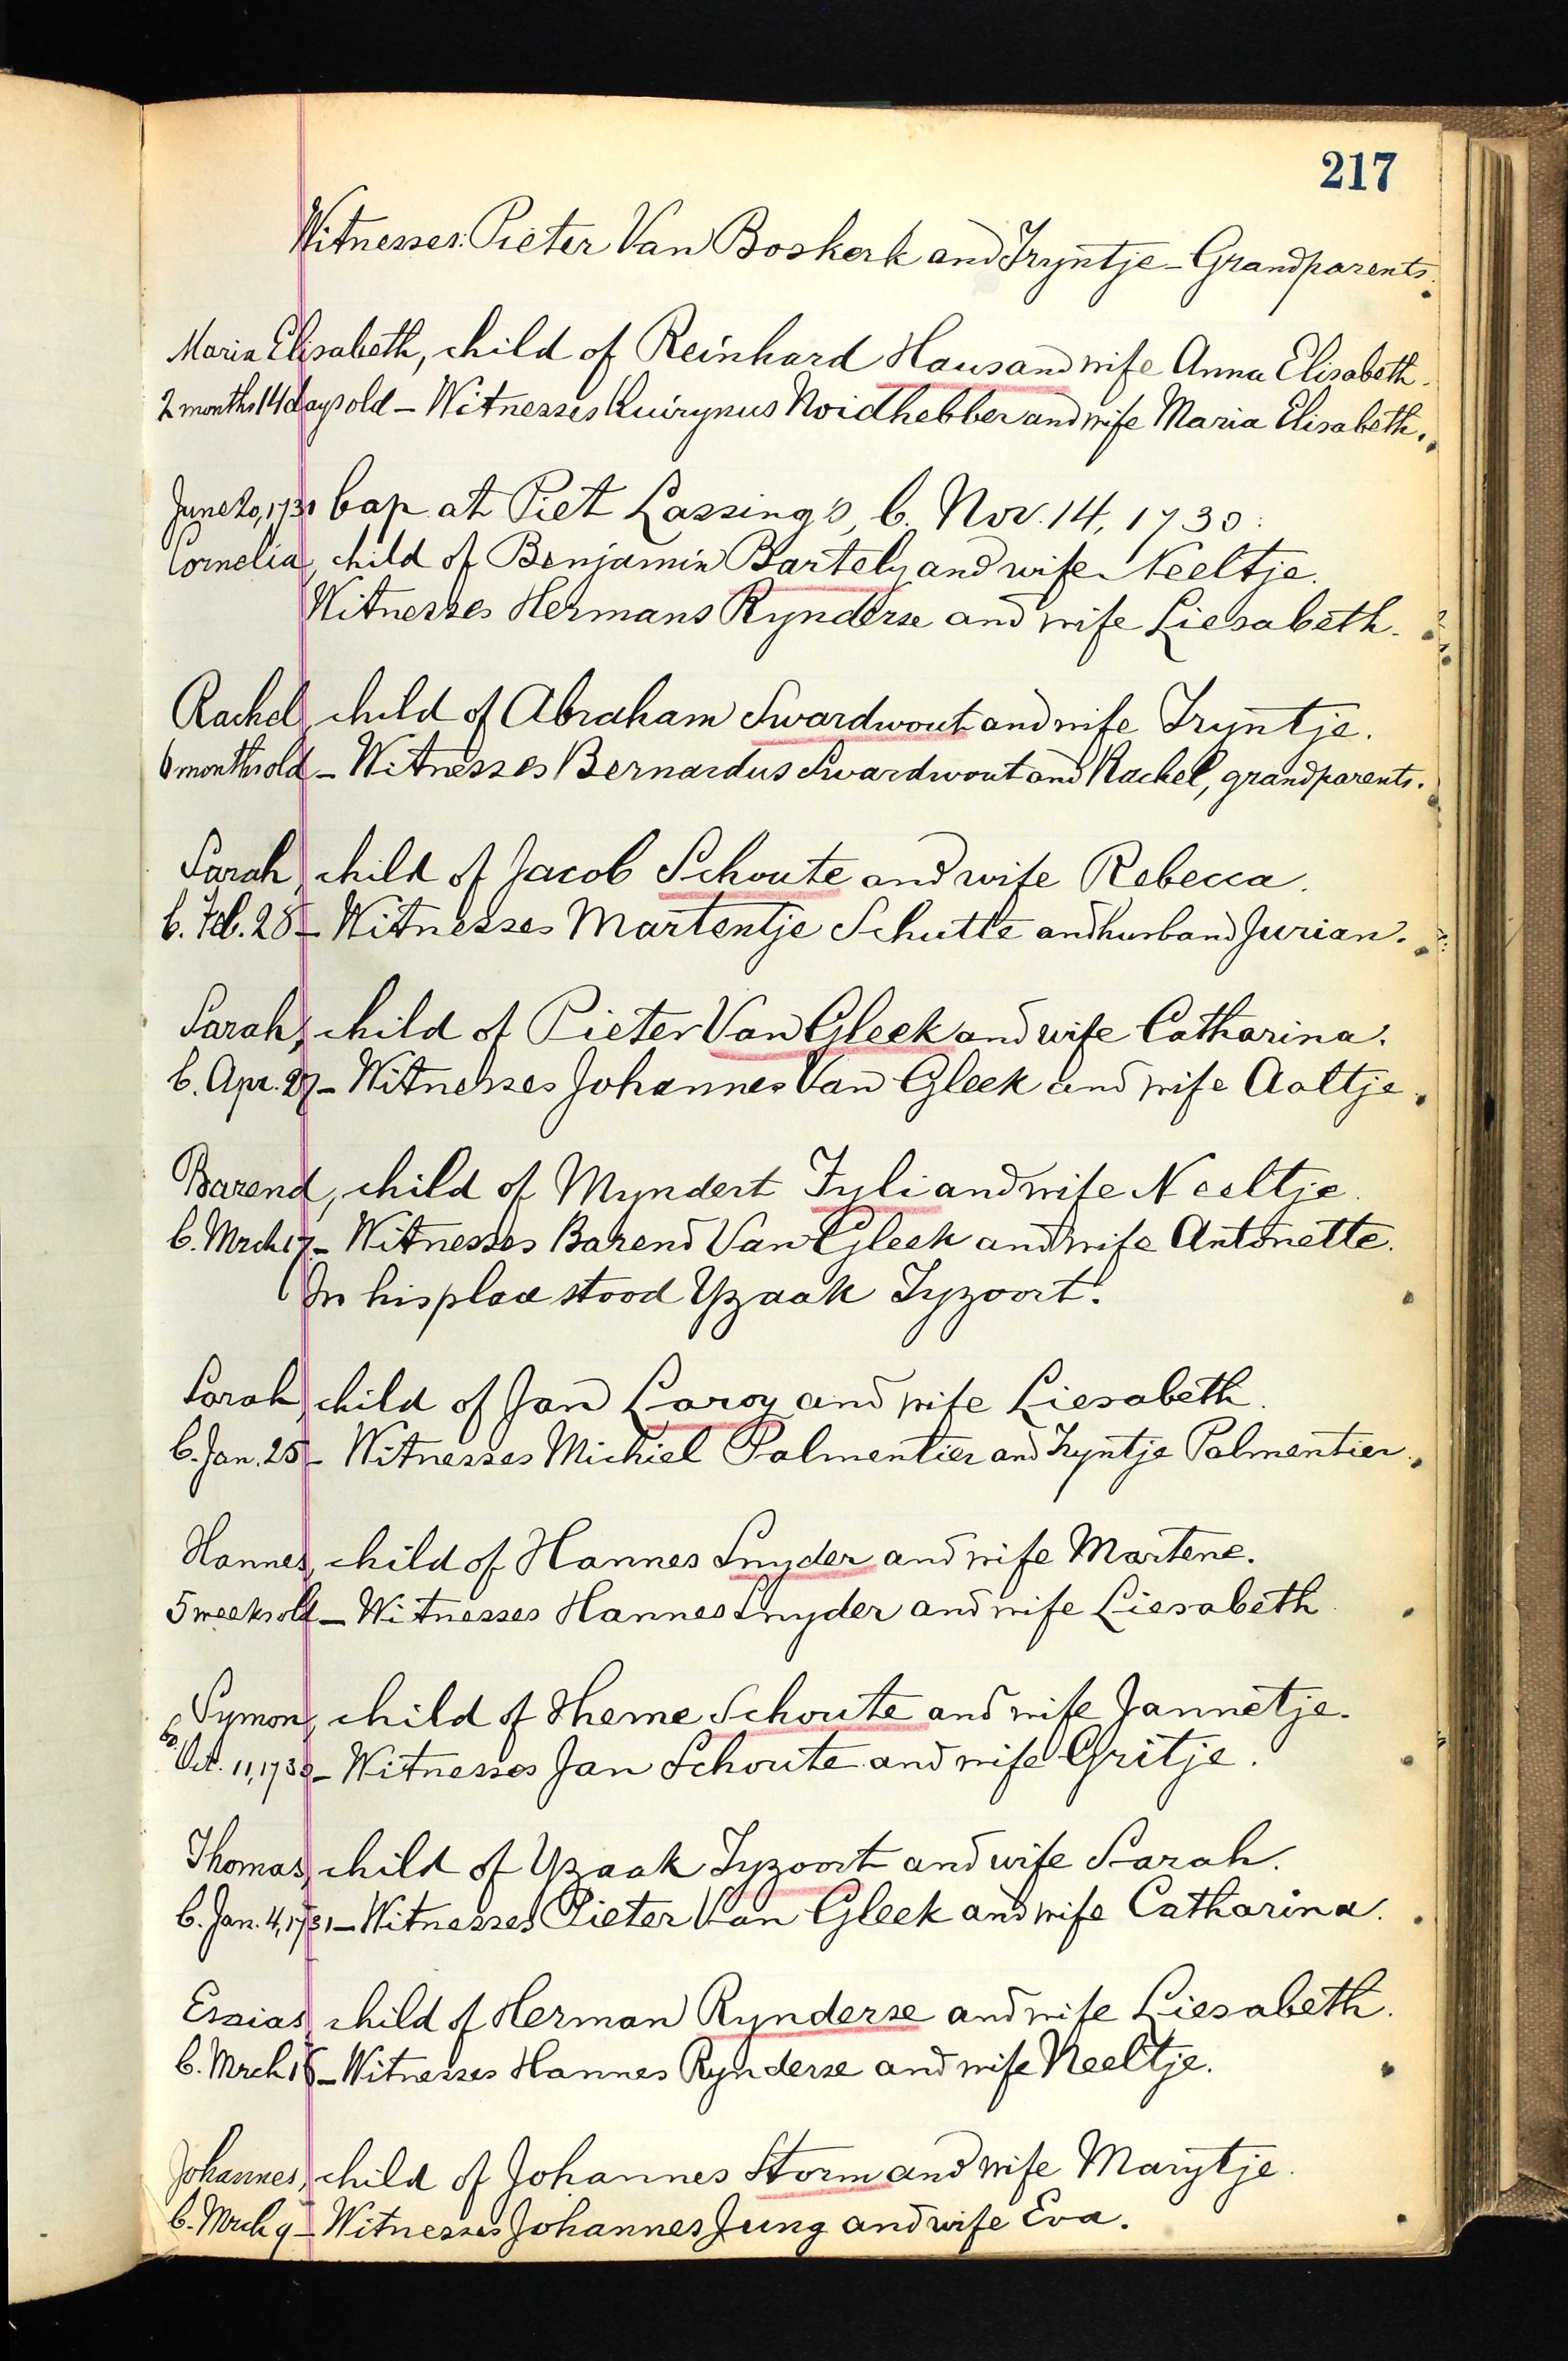 217
Witnesses: Pieter Van Boskerk and Tryntje - Grandparents.
Maria Elisabeth, child of Reinhard Haus and wife Anna Elisabeth.
2 months 14 days old - Witnesses Quirynus Noidhebber and wife Maria Elisabeth.
June 20, 1731 bap at Piet Lassing's, b. Nov. 14, 1730:
Cornelia, child of Benjamin Bartely and wife Neeltje.
Witnesses Hermans Rynderse and wife Liesabeth.
Rachel, child of Abraham Swardwout and wife Tryntje.
6 months old - Witnesses Bernardus Swardwout and Rachel, grandparents.
Sarah, child of Jacob Schoute and wife Rebecca.
b. Feb. 28 - Witnesses Martentje Schutte and husband Jurian.
Sarah, child of Pieter Van Gleek and wife Catharina.
b. Apr. 27 - Witnesses Johannes Van Gleek and wife Aaltje.
Barend, child of Myndert Fyli and wife Neeltje.
b. Mrch 17 - Witnesses Barend Van Gleek and wife Antonette.
In his place stood Yzaak Tyzoort.
Sarah, child of Jan Laroy and wife Liesabeth.
b. Jan. 25 - Witnesses Michiel Palmentier and Tryntje Palmentier.
Hannes, child of Hannes Snyder and wife Martene.
5 weeks old - Witnesses Hannes Snyder and wife Liesabeth
Symon, child of Heme Schoute and wife Jannetje.
b. Oct. 11, 1730 - Witnesses Jan Schoute and wife Gritje.
Thomas, child of Yzaak Tyzoort and wife Sarah.
b. Jan. 4, 1731 - Witnesses Pieter Van Gleek and wife Catharina.
Essias, child of Herman Rynderse and wife Liesabeth.
b. Mrch 16 - Witnesses Hannes Rynderse and wife Neeltje.
Johannes, child of Johannes Storm and wife Marytje.
b. Mrch 9 - Witnesses Johannes Jung and wife Eva.